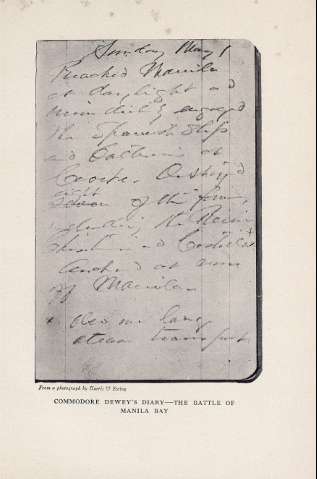 Sunday May 1
Reached Manila
at daylight and
immediately engaged
the Spanish ships
and batteries at
Cavite. Destroyed
eight of the former,
including the Reina
Christina and Castilla
Anchored at noon
off Manila.
also one large
steam transport
From a photograph by Clinedinst
COMMODORE DEWEY'S DIARY—THE BATTLE OF
MANILA BAY